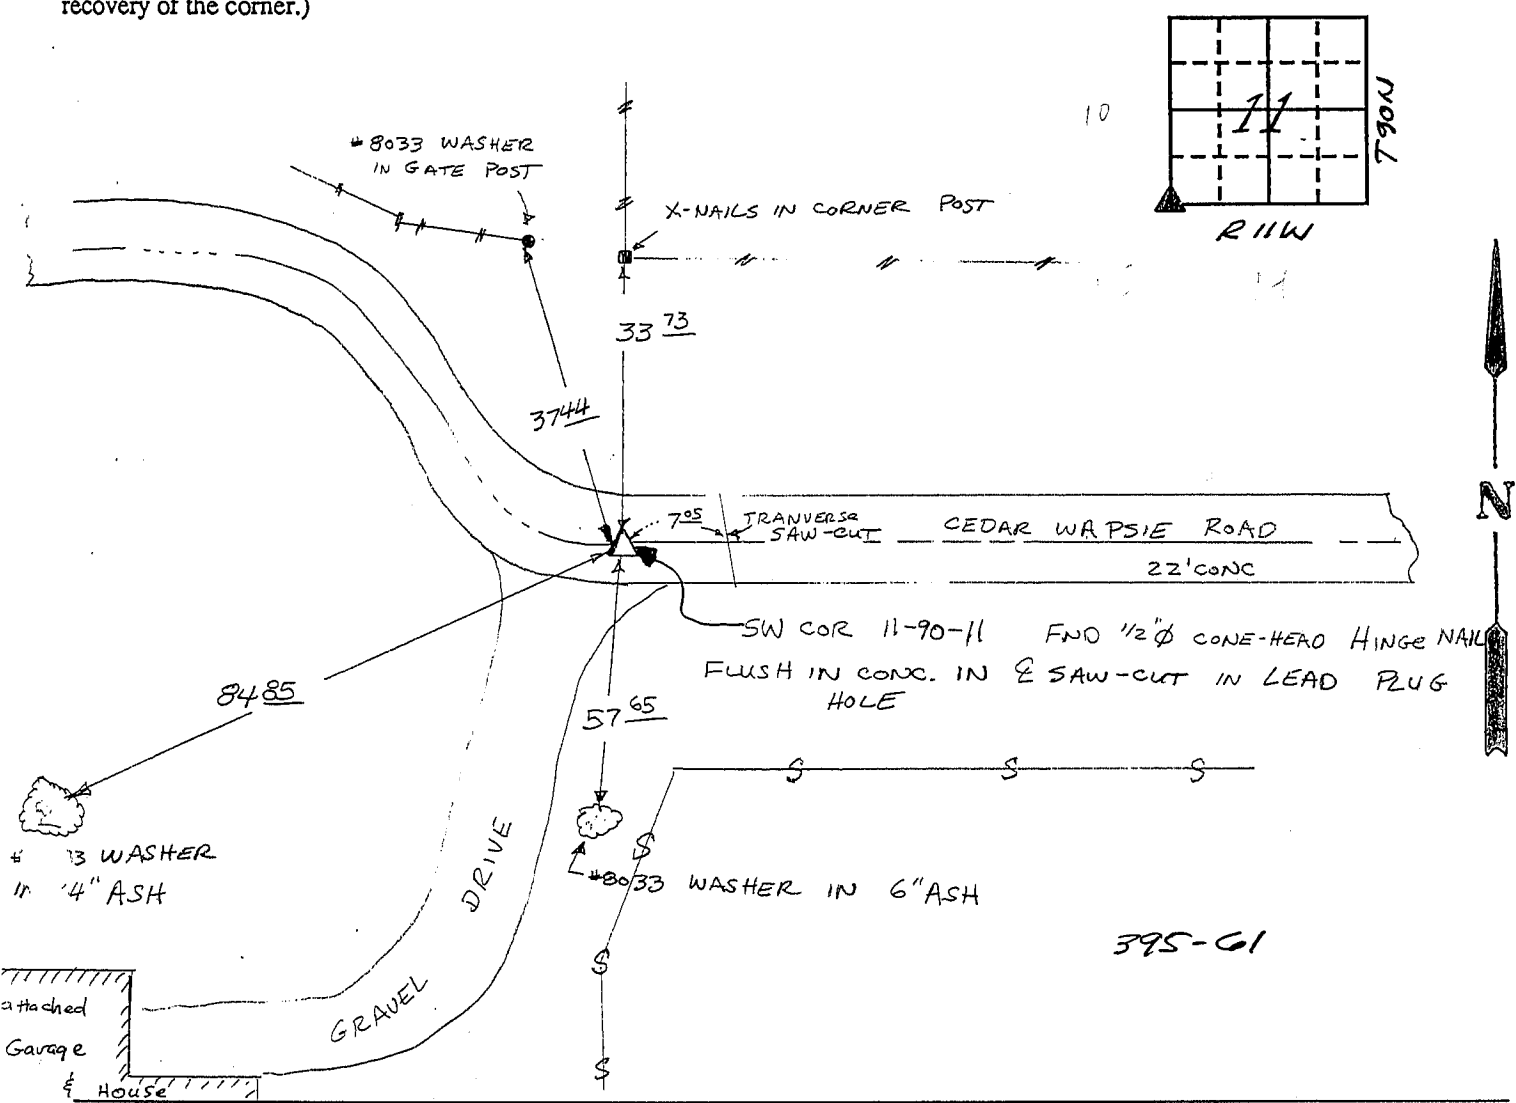 recovery of the corner.)
10
11
T90N
R11W
#8033 WASHER
IN GATE POST
X-NAILS IN CORNER POST
14
33 73
3744
N
7 05
TRANVERSE
SAW-CUT
CEDAR WAPSIE ROAD
22' CONC
SW COR 11-90-11 FND 1/2"Ø CONE-HEAD HINGE NAIL
FLUSH IN CONC. IN ℄ SAW-CUT IN LEAD PLUG
HOLE
8485
57 65
S S S
S
# 33 WASHER
IN 4" ASH
#8033 WASHER IN 6" ASH
DRIVE
GRAVEL
395-61
S
S
attached
Garage
& House